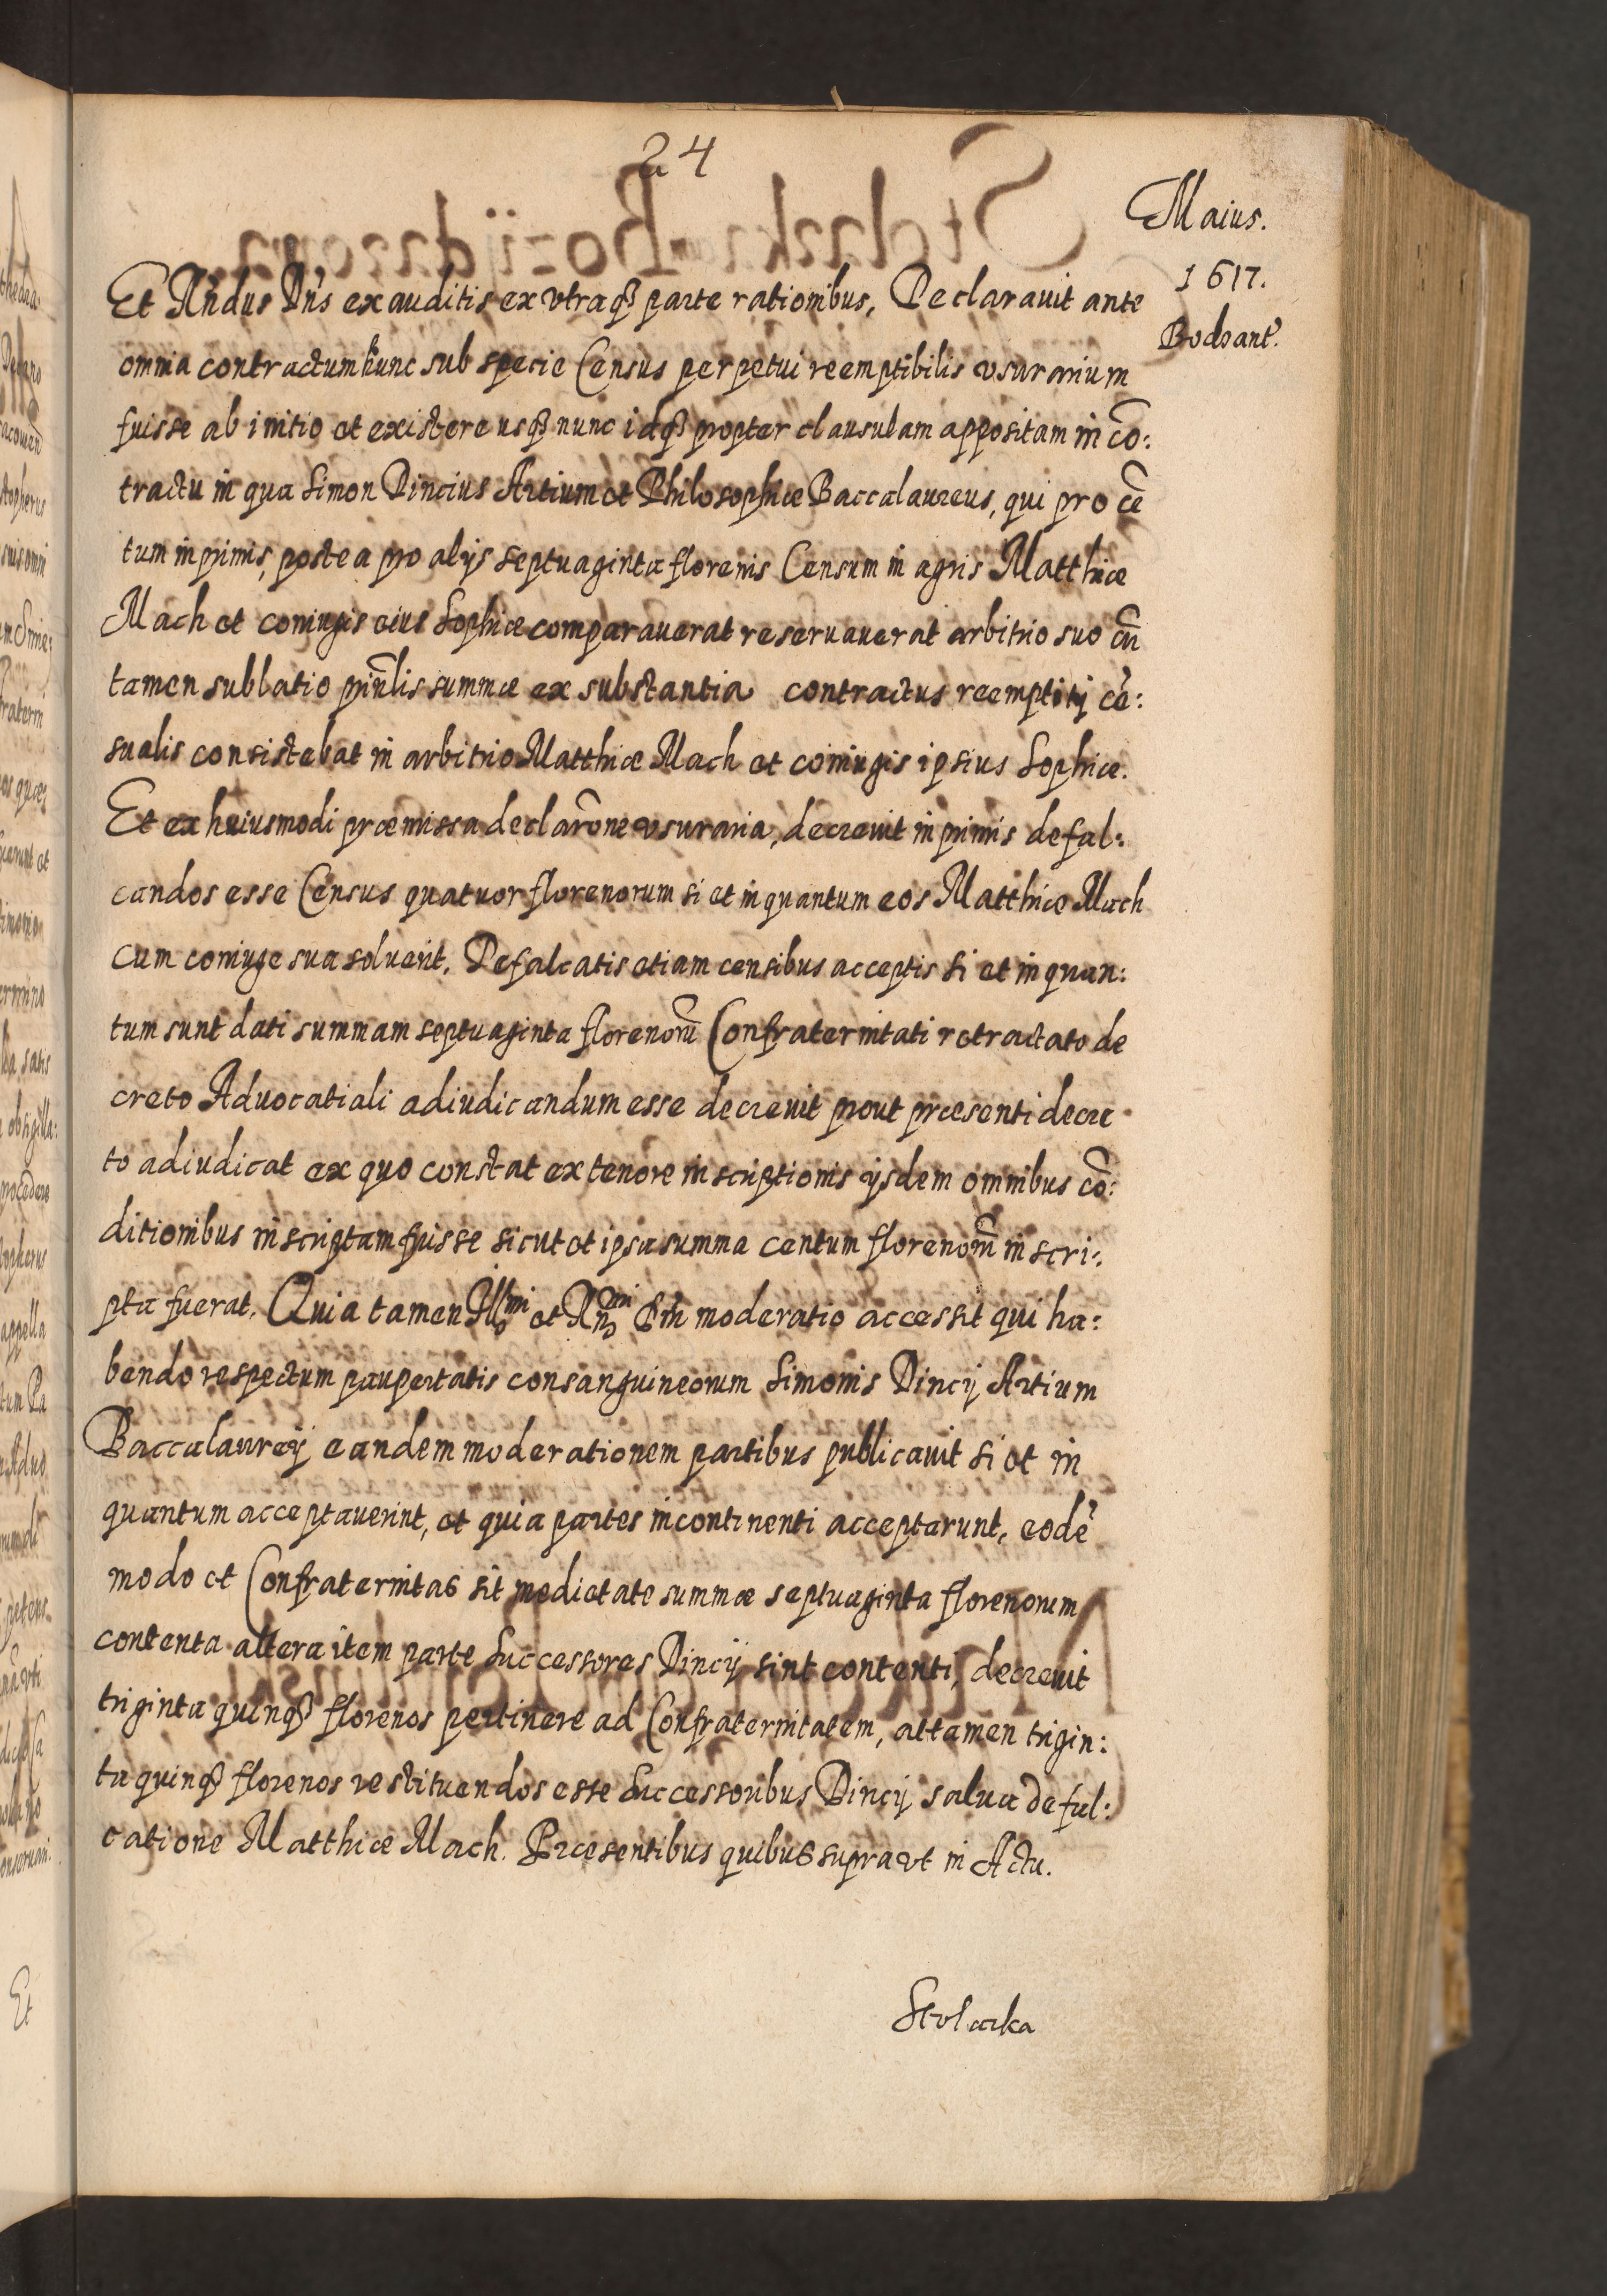 24
Maius.
1617.
Bodzant.
Et Rñdus Dñs exauditis ex vtraqȝ parte rationibus, Declarauit ante
omnia contractum hunc sub specie Census perpetui reemptibilis vsurarium
fuisse ab initio et existere usqȝ nunc idqȝ propter clausulam appositam in cõ:
tractu in qua Simon Dincius Artium et Philosophiæ Baccalaureus, qui pro cẽ
tum inprimis, postea pro alijs septuaginta florenis Censum in agris Matthiæ
Mach et coniugis eius Sophiæ comparauerat reseruauerat arbitrio suo cũ
tamen sublatio prinlis summæ ex substantia contractus reemptitij cẽ:
sualis consistebat in arbitrio Matthiæ Mach et coniugis ipsius Sophiæ.
Et ex huiusmodi præmissa declarõne vsuraria, decreuit inprimis defal:
candos esse Census quatuor florenorum si et inquantum eos Matthiæ Mach
cum coniuge sua soluerit. Defalcatis etiam censibus acceptis si et inquan:
tum sunt dati summam septuaginta florenorũ Confraternitati retractato de
creto Aduocatiali adiudicandum esse decreuit prout præsenti decre
to adiudicat ex quo constat ex tenore inscriptionis ijsdem omnibus cõ:
ditionibus inscriptam fuisse sicut et ipsa summa centum florenorũ inscri:
pta fuerat. Quia tamen Illmi et Rñdmi moderatio accessit qui ha:
bendo respectum paupertatis consanguineorum Simonis Dincij Artium
Baccalaurej eandem moderationem partibus publicauit si et in
quantum acceptauerint, et quia partes incontinenti acceptarunt, eodẽ
modo et Confraternitas sit medietate summæ septuaginta florenorum
contenta altera item parte Successores Dincij sint contenti, decreuit
triginta quinqȝ florenos pertinere ad Confraternitatem, attamen trigin:
ta quinqȝ florenos restituendos esse Successoribus Dincij salua defal:
catione Matthiæ Mach. Præsentibus quibus supra vt in Actu.
Stolarka
Et